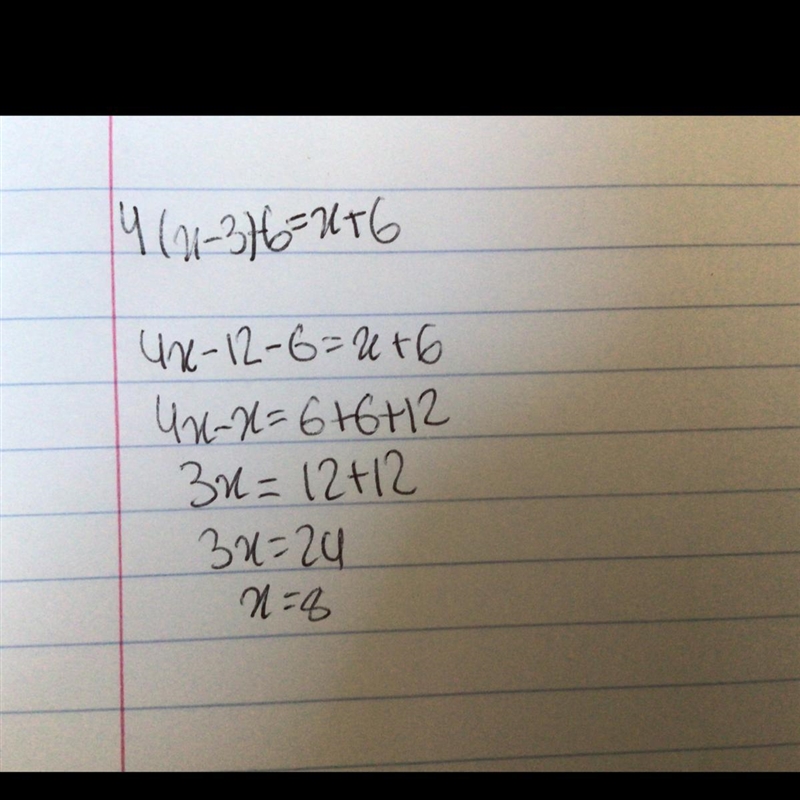 4(x-3)-6=x+6
4x-12-6=x+6
4x-x=6+6+12
3x=12+12
3x=24
x=8